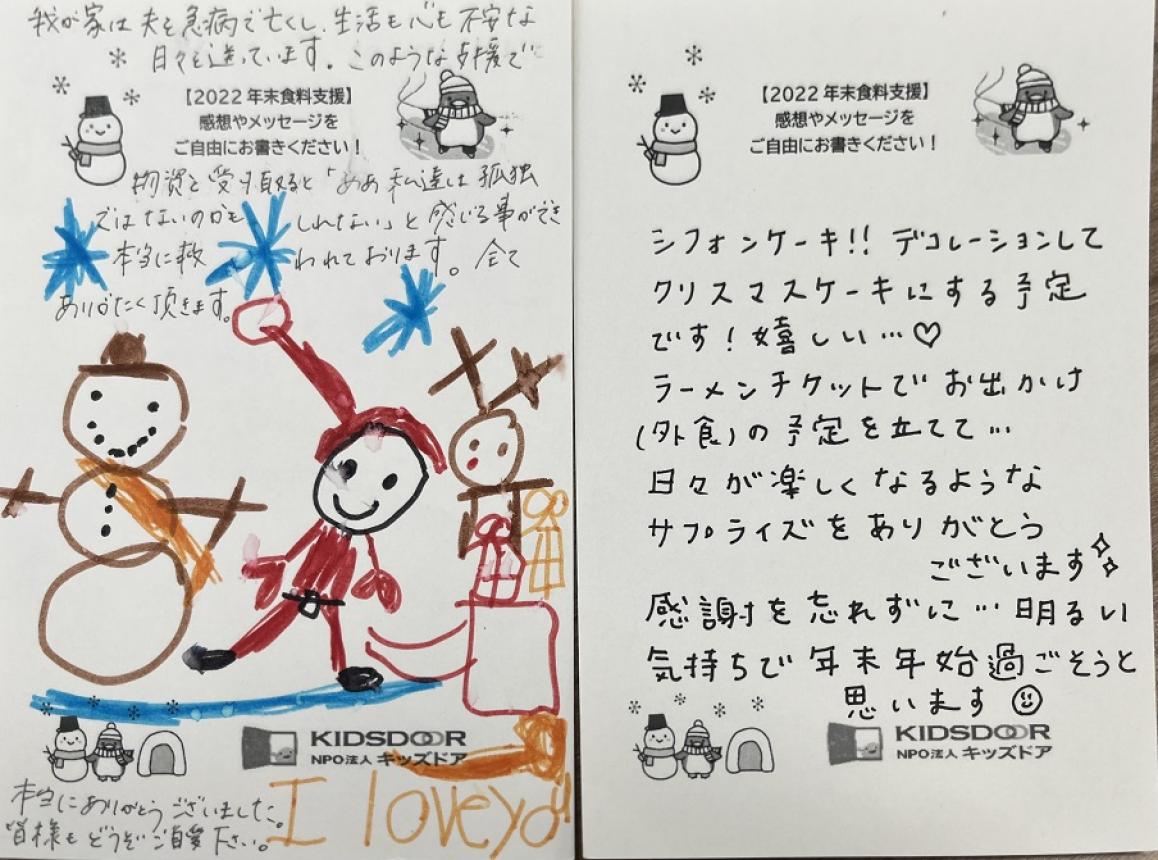 我が家は夫を急病で亡くし、生活も心も不安な
日々を送っています。このような支援で
【2022年末食料支援】
感想やメッセージを
ご自由にお書きください！
物資を受け取ると「ああ私達は孤独
ではないのかもしれない」と感じる事ができ
本当に救われております。全て
ありがたく頂きます。
KIDSDOOR
NPO法人 キッズドア
本当にありがとうございました。
皆様もどうぞご自愛下さい。
I loveyou
【2022年末食料支援】
感想やメッセージを
ご自由にお書きください！
シフォンケーキ!! デコレーションして
クリスマスケーキにする予定
です！嬉しい…♡
ラーメンチケットでお出かけ
(外食)の予定を立てて…
日々が楽しくなるような
サプライズをありがとう
ございます
感謝を忘れずに…明るい
気持ちで年末年始過ごそうと
思います☺
KIDSDOOR
NPO法人 キッズドア